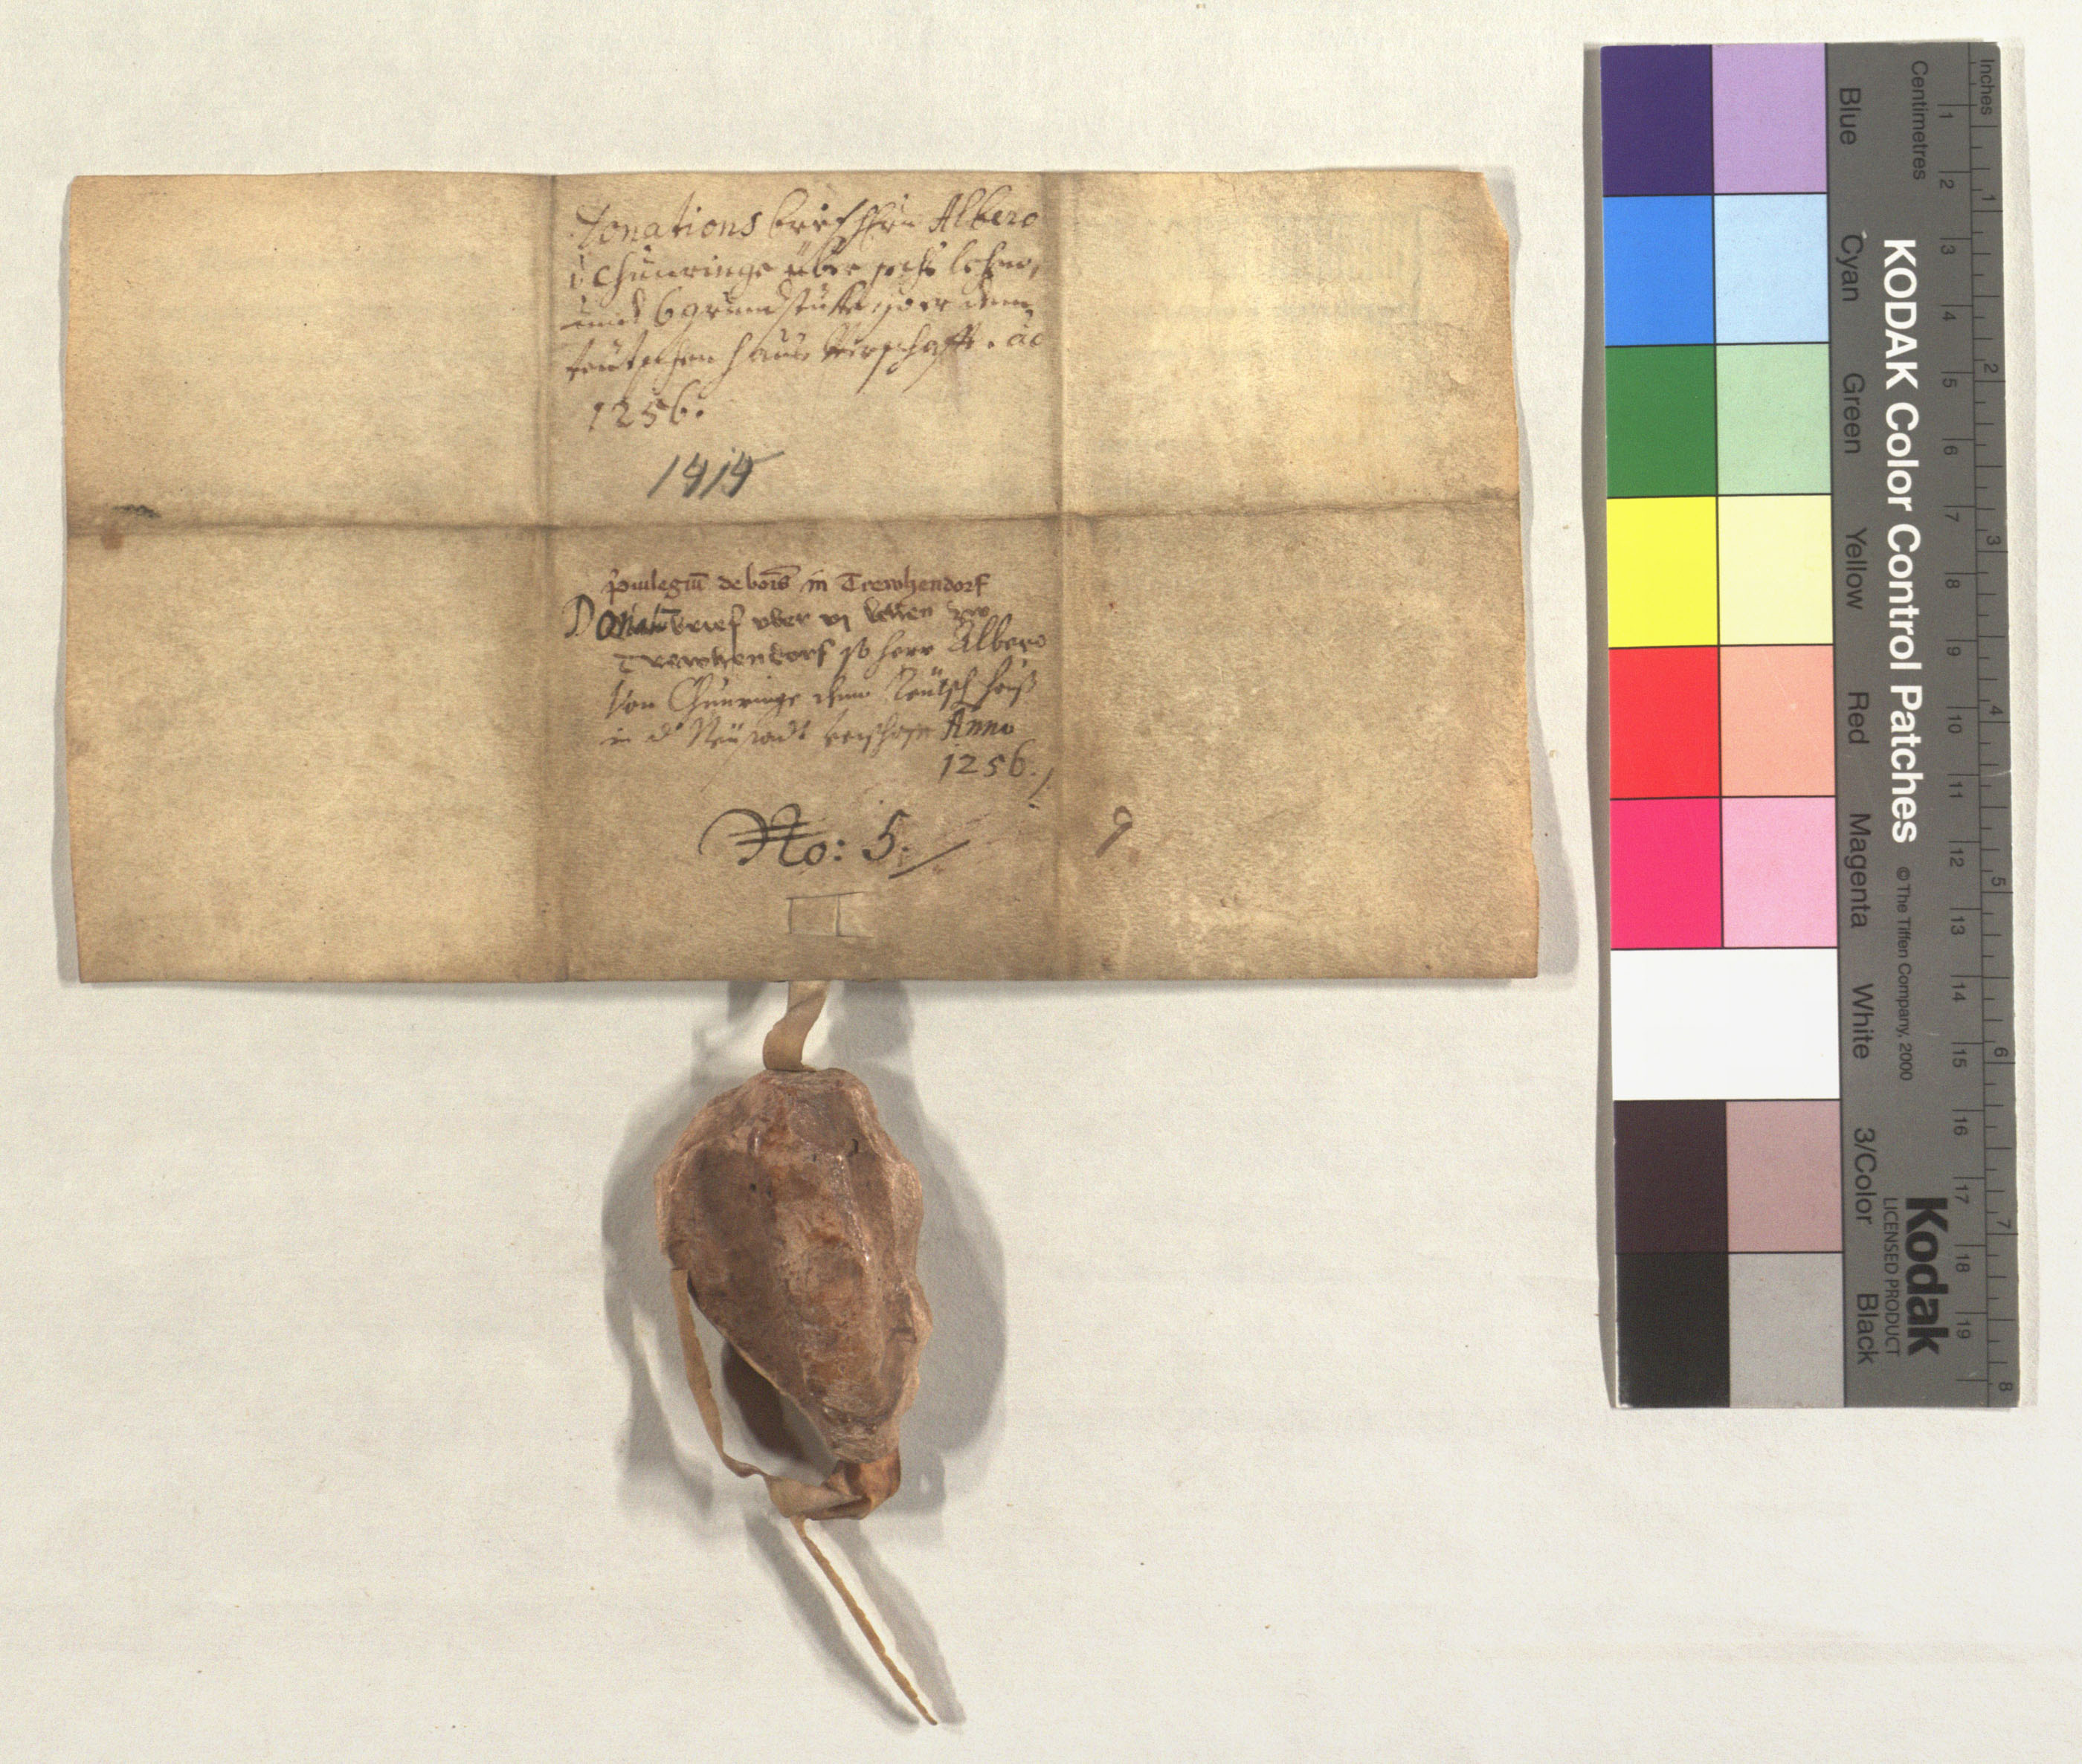 Donations brieff Hrn Albero
v. Chunringe über sechs lehen,
und 6 grundstükhe, so er dem
teutschen Haus Verschafft. ao
1256.
1414
p̄uilegiū de boīs in Trewhendorf
Donatiō brief vber vj lehen zw
Trewhendorf so herr Albero
Von Chunringe dem Teütsch hauß
in d' Neüstadt verschafft Anno
1256.
No: 5.
9
KODAK Color Control Patches
© The Tiffen Company, 2000
Kodak
LICENSED PRODUCT
Inches
1 2 3 4 5 6 7 8
Centimetres
1 2 3 4 5 6 7 8 9 10 11 12 13 14 15 16 17 18 19
Blue Cyan Green Yellow Red Magenta White 3/Color Black